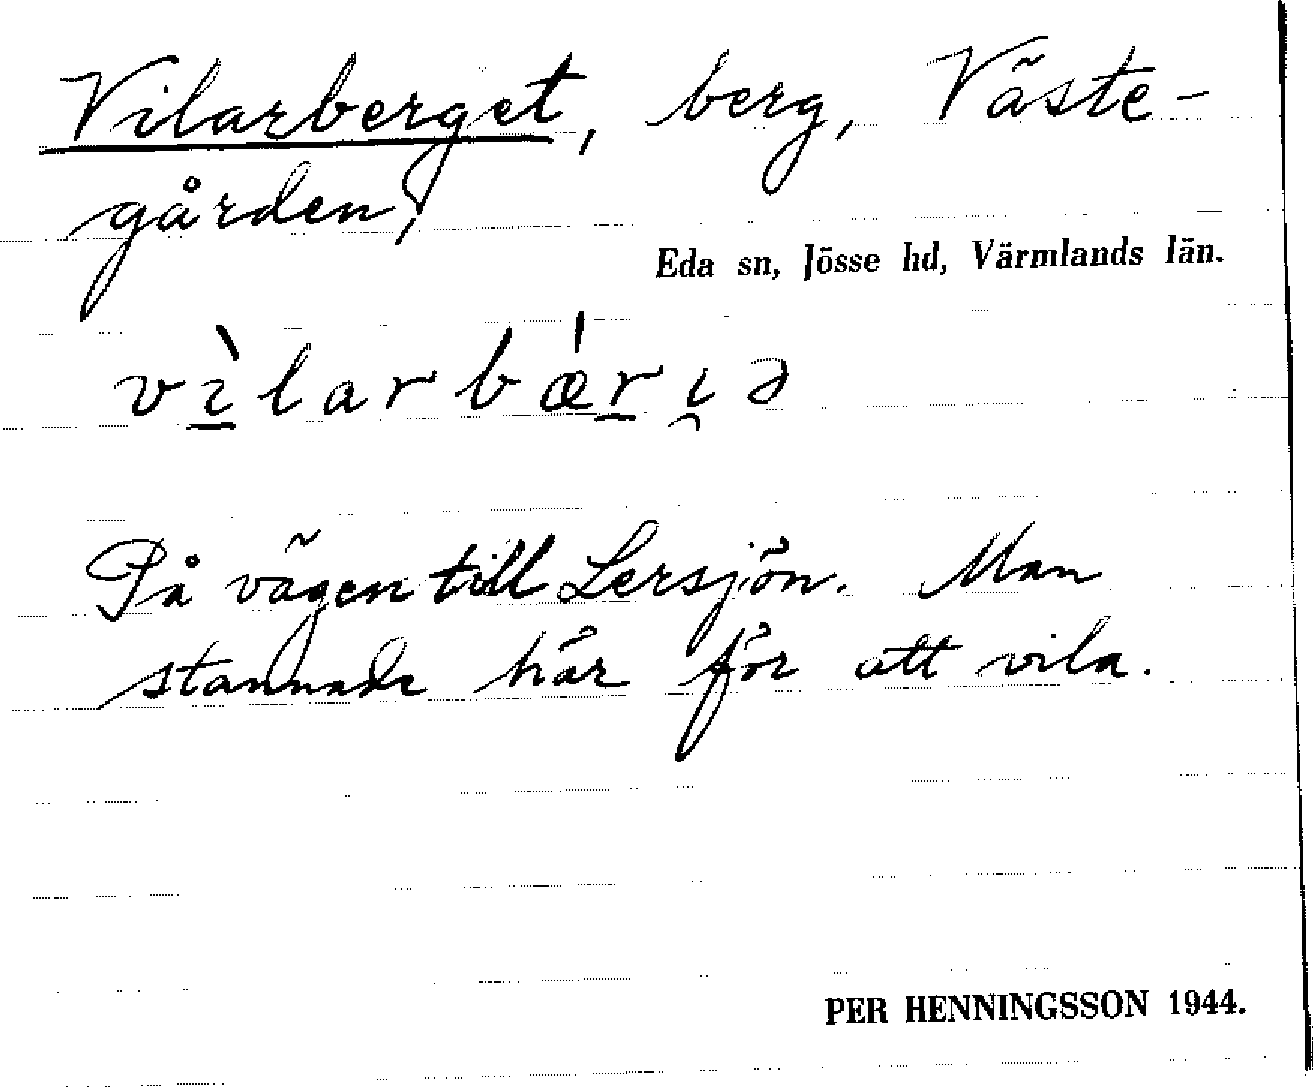 Vilarberget, berg, Väste-
gården,
Eda sn, Jösse hd, Värmlands län.
vı̱̀larbǽṟı̯ə
På vägen till Lersjön. Man
stannade här för att vila.
PER HENNINGSSON 1944.